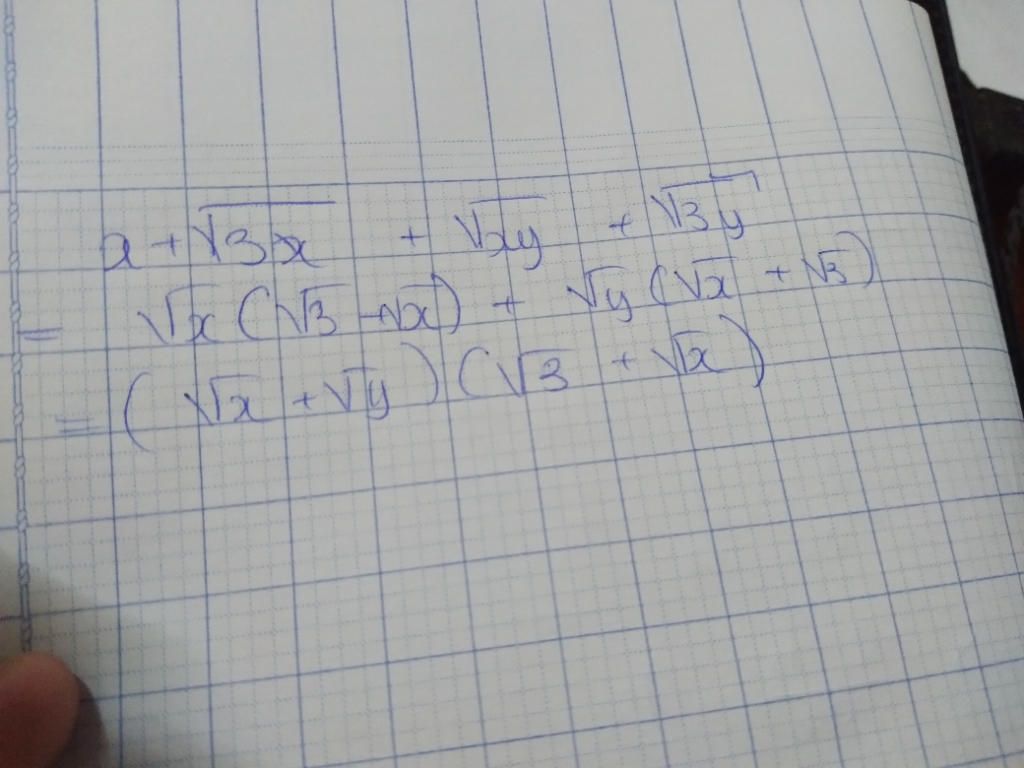 x + √3x + √xy + √3y
= √x (√3 + √x) + √y (√x + √3)
= (√x + √y) (√3 + √x)